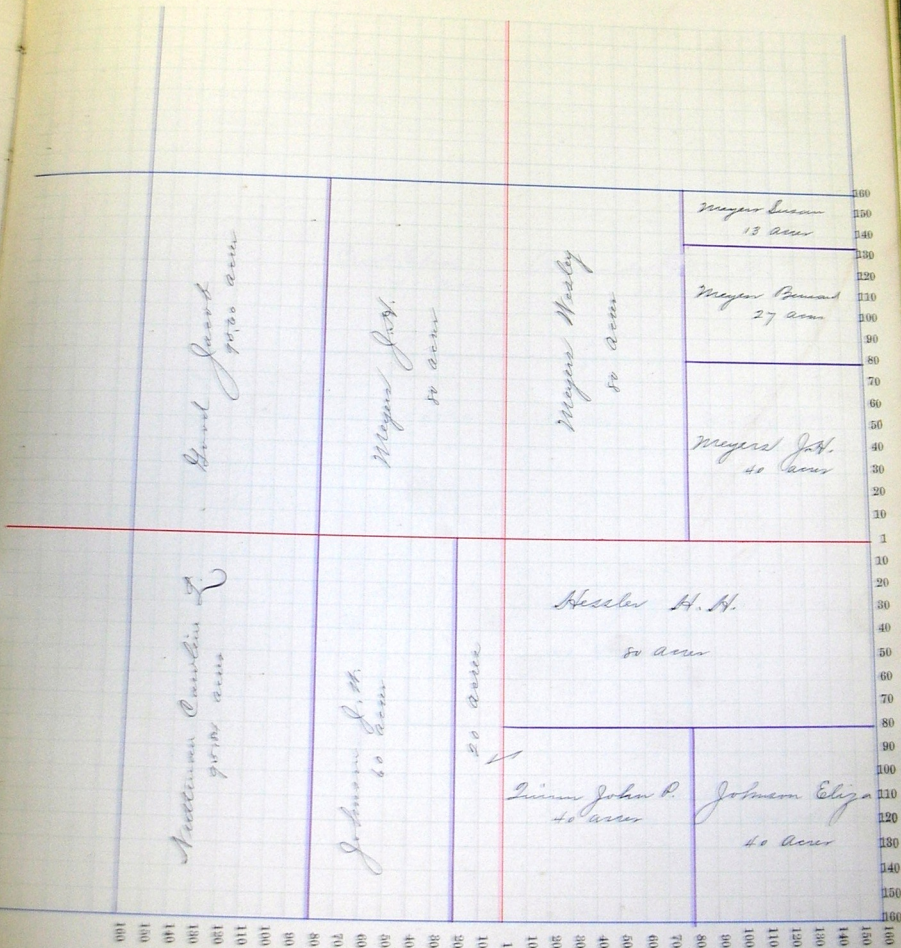 Meyers Susan
13 acres
Good Jacob
acres
Meyers J.H.
80 acres
Meyers Wesley
80 acres
Meyers
27 acres
Meyers J.H.
40 acres
Caroline L
acres
Johnson J.H.
60 acres
20 acres
Hessler H. H.
80 acres
John P.
40 acres
Johnson Eliza
40 acres
160
150
140
130
120
110
100
90
80
70
60
50
40
30
20
10
1
10
20
30
40
50
60
70
80
90
100
110
120
130
140
150
160
160 150 140 130 120 110 100 90 80 70 60 50 40 30 20 10 1 10 20 30 40 50 60 70 80 90 100 110 120 130 140 150 160